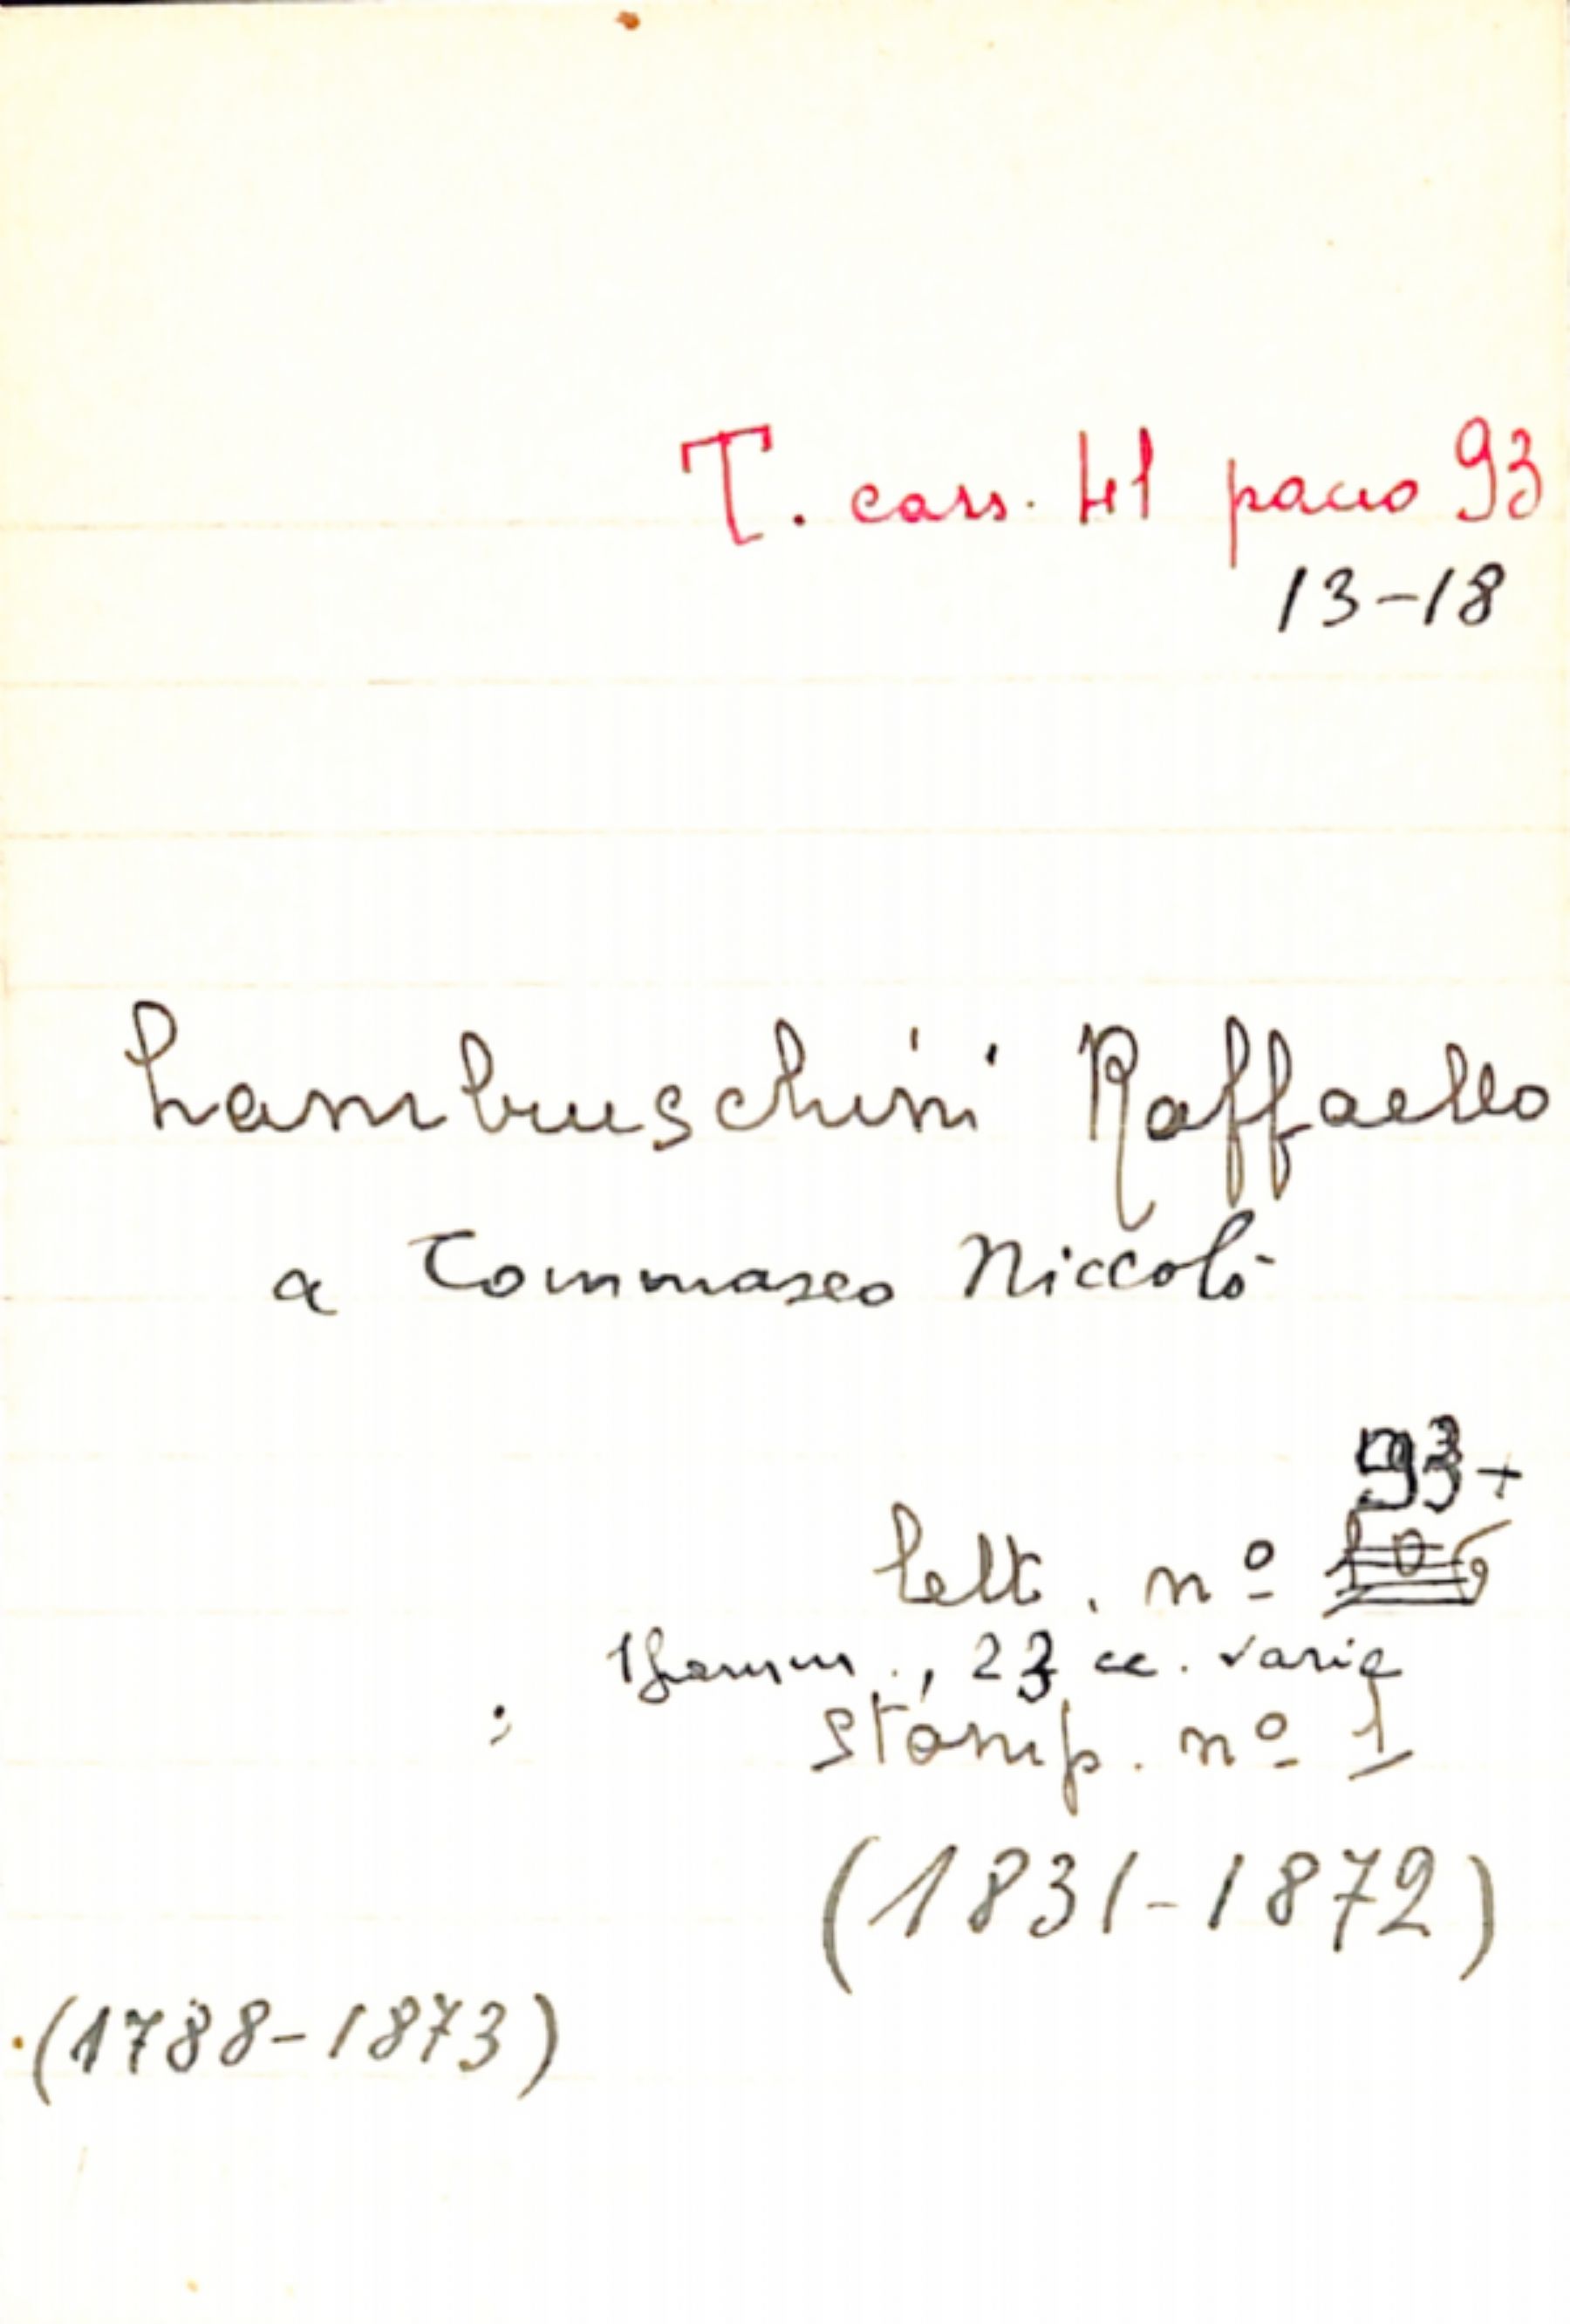 T. cass. 41 pacco 93
13-18
Lambruschini Raffaello
a Tommaseo Niccolò
93+
lett. nº
1 framm., 23 cc. varie
stamp. nº 1
(1831-1872)
(1788-1873)